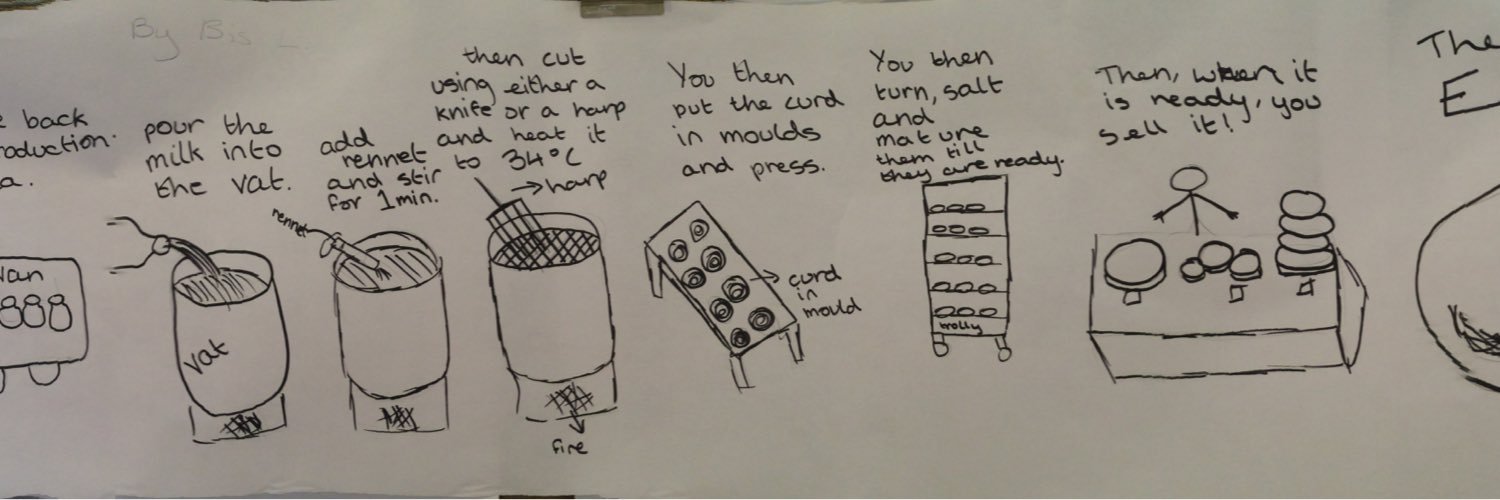 By Bis L.
e back
roduction.
a.
Van
pour the
milk into
the vat.
vat
add
rennet
and stir
for 1min.
rennet
then cut
using either a
knife or a harp
and heat it
to 34°C
→harp
fire
You then
put the curd
in moulds
and press.
curd
in
mould
You then
turn, salt
and
mature
them till
they are ready.
trolly
Then, when it
is ready, you
sell it!
The
E